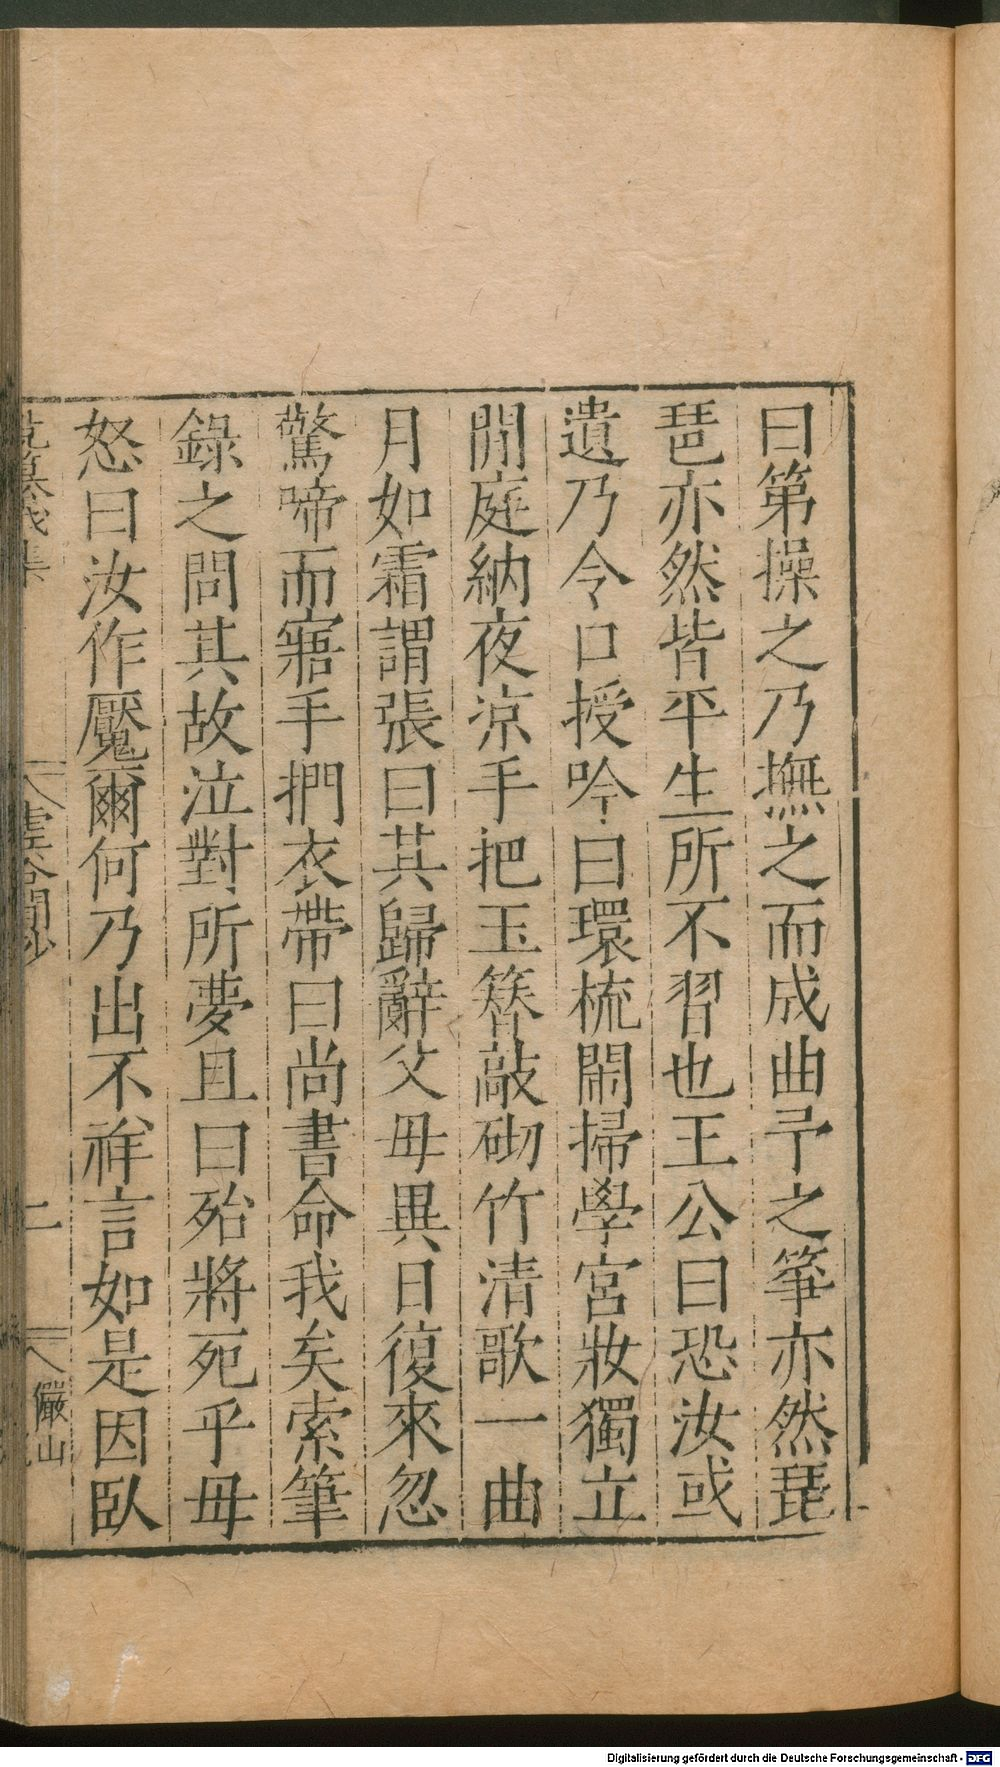 曰第操之乃撫之而成曲予之箏亦然琵
琶亦然皆平生所不習也王公曰恐汝或
遺乃令口授吟曰環梳鬧掃學宮妝獨立
閒庭納夜涼手把玉簪敲砌竹清歌一曲
月如霜謂張曰其歸辭父母異日復來忽
驚啼而寤手捫衣帶曰尚書命我矣索筆
錄之問其故泣對所夢且曰殆將死乎母
怒曰汝作魘爾何乃出不祥言如是因臥
虛谷閒抄
二
儼山
Digitalisierung gefördert durch die Deutsche Forschungsgemeinschaft - DFG